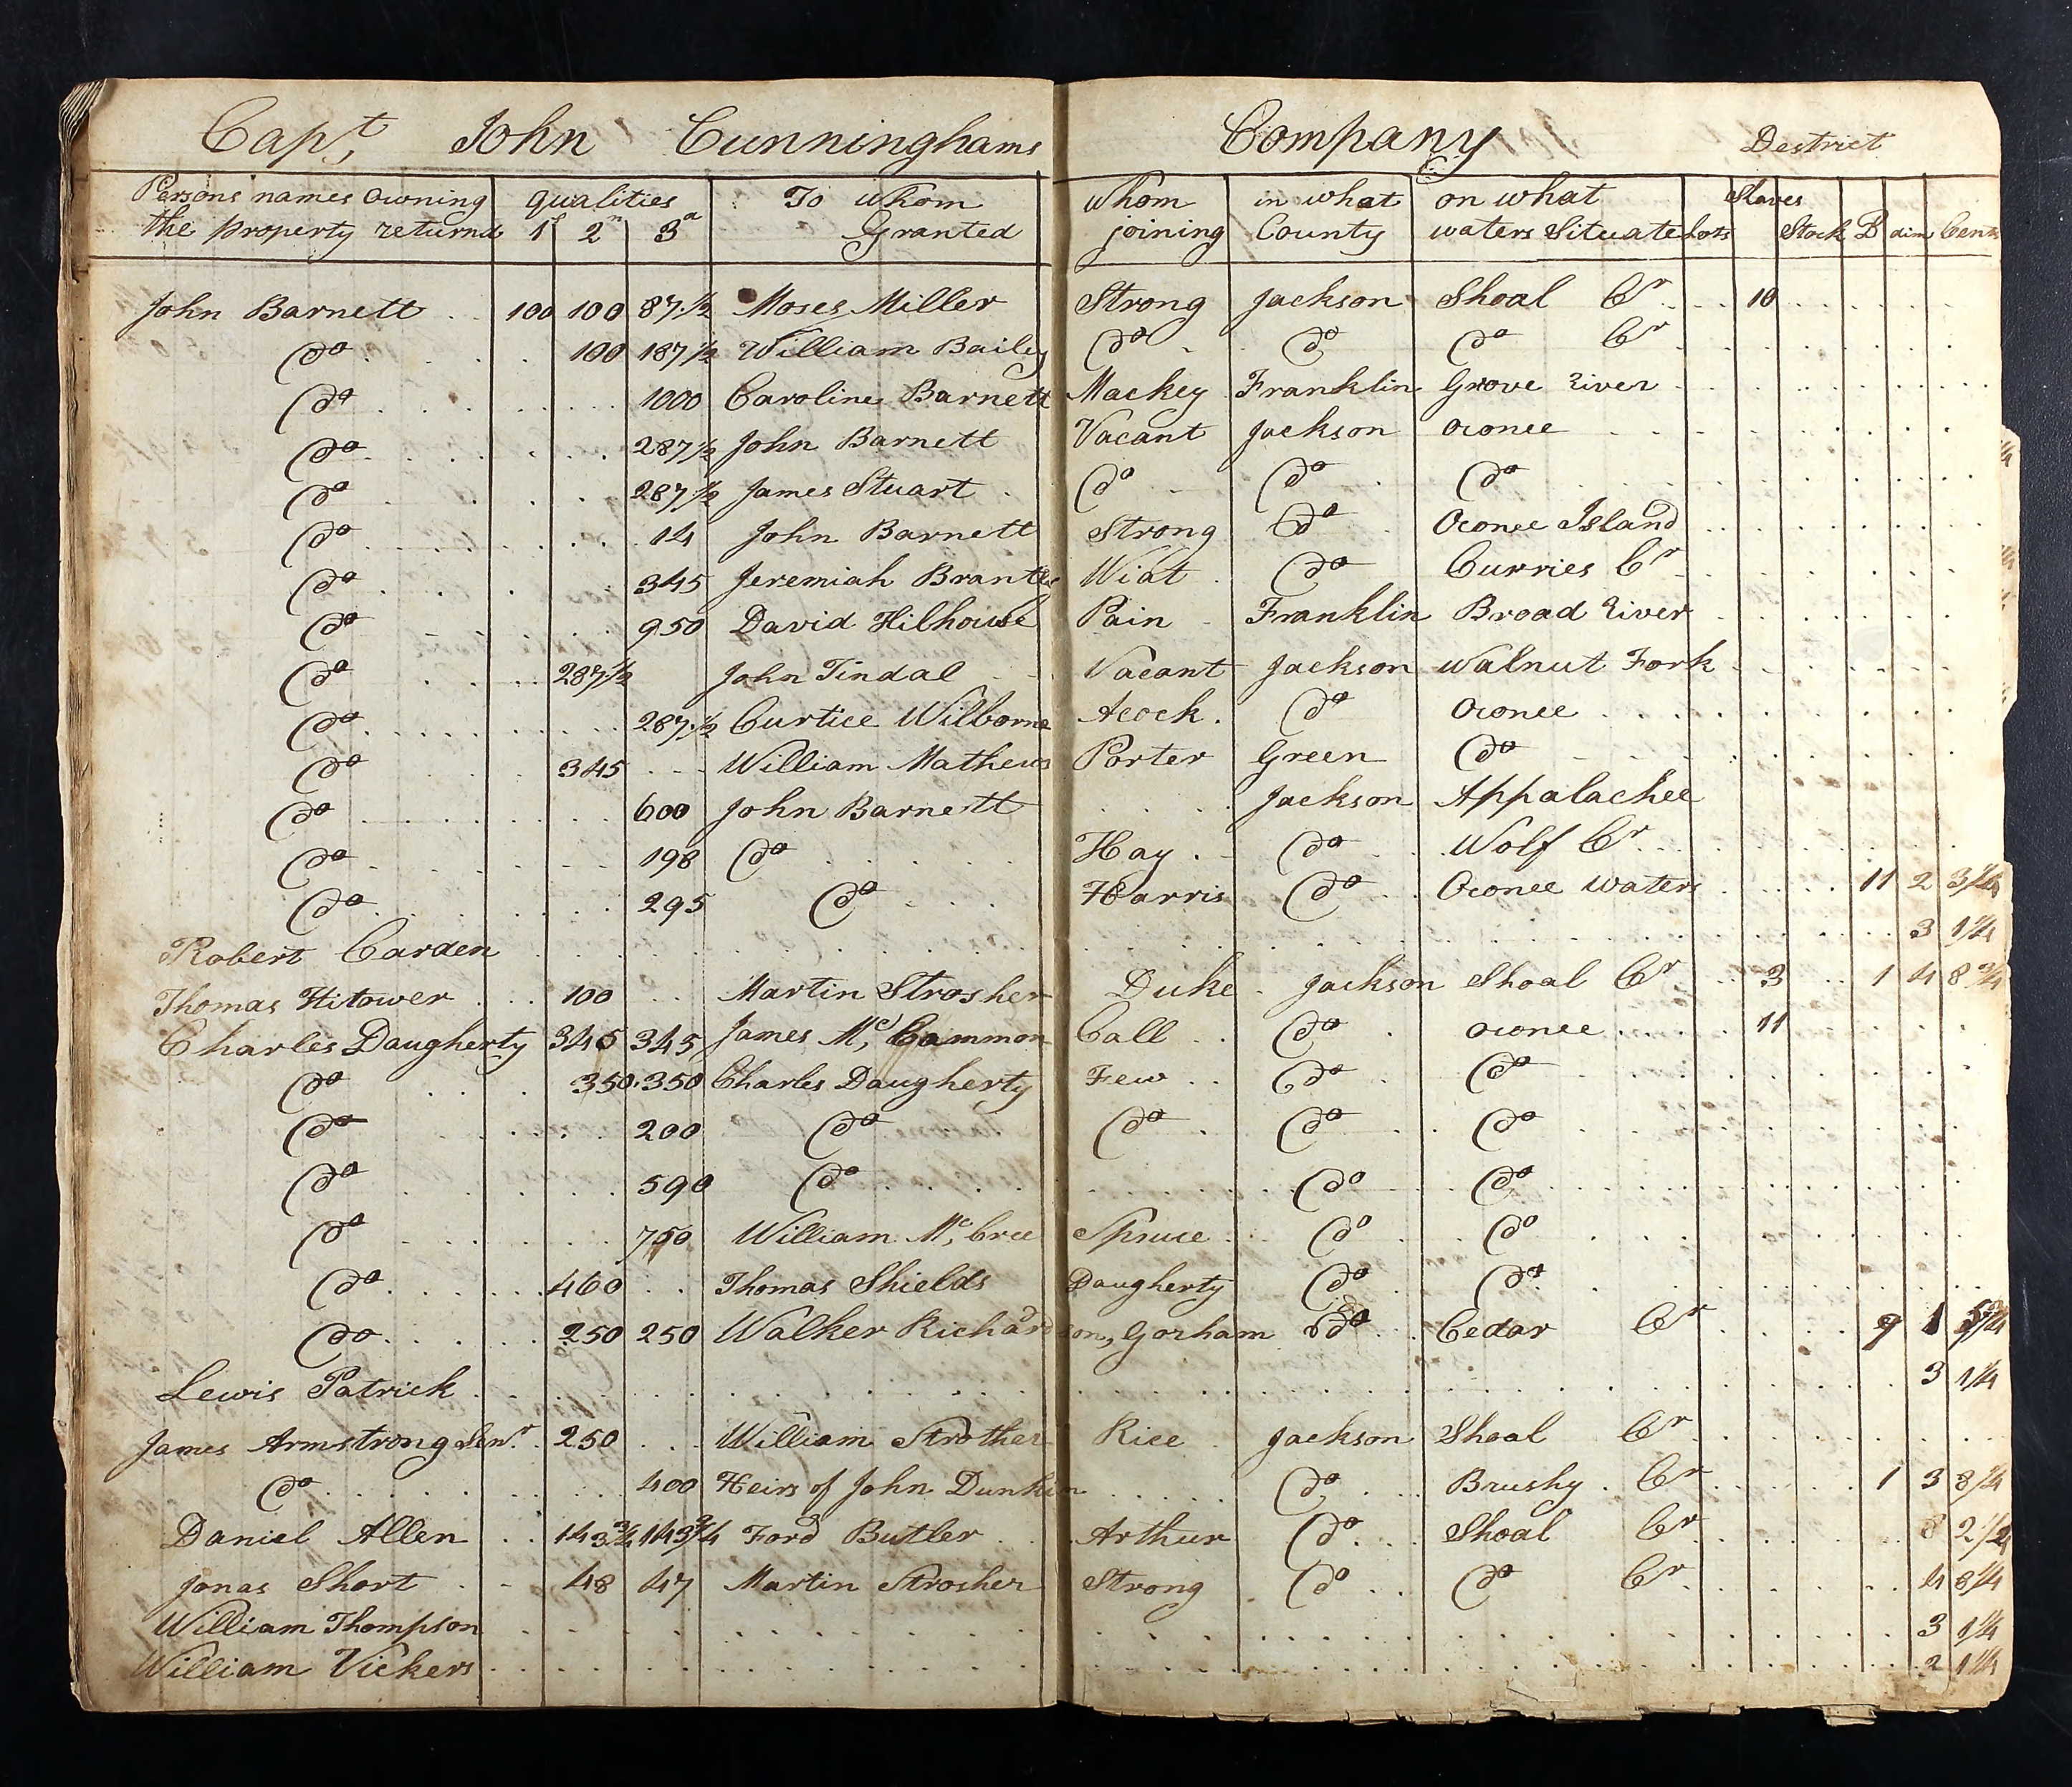 Capt, John Cunninghams Company District
Persons names owning qualities To whom whom in what on what Slaves
the property returnd 1st 2n 3d Granted joining County waters Situate Lots Stock D dim Cents
John Barnett 100 100 87 1/2 Moses Miller Strong Jackson Shoal Cr 10
Do 100 187 1/2 William Bailey Do Do Do Cr
Do 1000 Caroline Barnett Mackey Franklin Grove River
Do 287 1/2 John Barnett Vacant Jackson Oconee
Do 287 1/2 James Stuart Do Do Do
Do 14 John Barnett Strong Do Oconee Island
Do 345 Jeremiah Wiat Do Curries Cr
Do 950 David Hilhouse Pain Franklin Broad River
Do 287 1/2 John Tindal Vacant Jackson Walnut Fork
Do 287 1/2 Curtice Wilborne Acock Do Oconee
Do 345 William Mathews Porter Green Do
Do 600 John Barnett Jackson Appalachee
Do 198 Do Hay Do Wolf Cr
Do 295 Do Harris Do Oconee waters 11 2
Robert Carden 3 1 1/4
Thomas Hitower 100 Martin Strosher Duke Jackson Shoal Cr 3 1 4 8 3/4
Charles Daugherty 345 345 James Mc, Cammon Call Do Oconee 11
Do 350 350 Charles Daugherty Few Do Do
Do 200 Do Do Do Do
Do 590 Do Do Do
Do 750 William Mc, Cree Spruce Do Do
Do 460 Thomas Shields Daugherty Do Do
Do 250 250 Walker Richardson, Gorham Do Cedar Cr 9 1
Lewis Patrick 3 1 1/4
James Armstrong Senr. 250 William Strother Rice Jackson Shoal Cr
Do 400 Heirs of John Dunkin Do Brushy Cr 1 3 8 1/4
Daniel Allen 143 3/4 143 3/4 Ford Butler Arthur Do Shoal Cr 8 2 1/2
Jonas Short 48 47 Martin Strosher Strong Do Do Cr 4 8 1/4
William Thompson 3 1 1/4
William Vickers 2 1 1/4